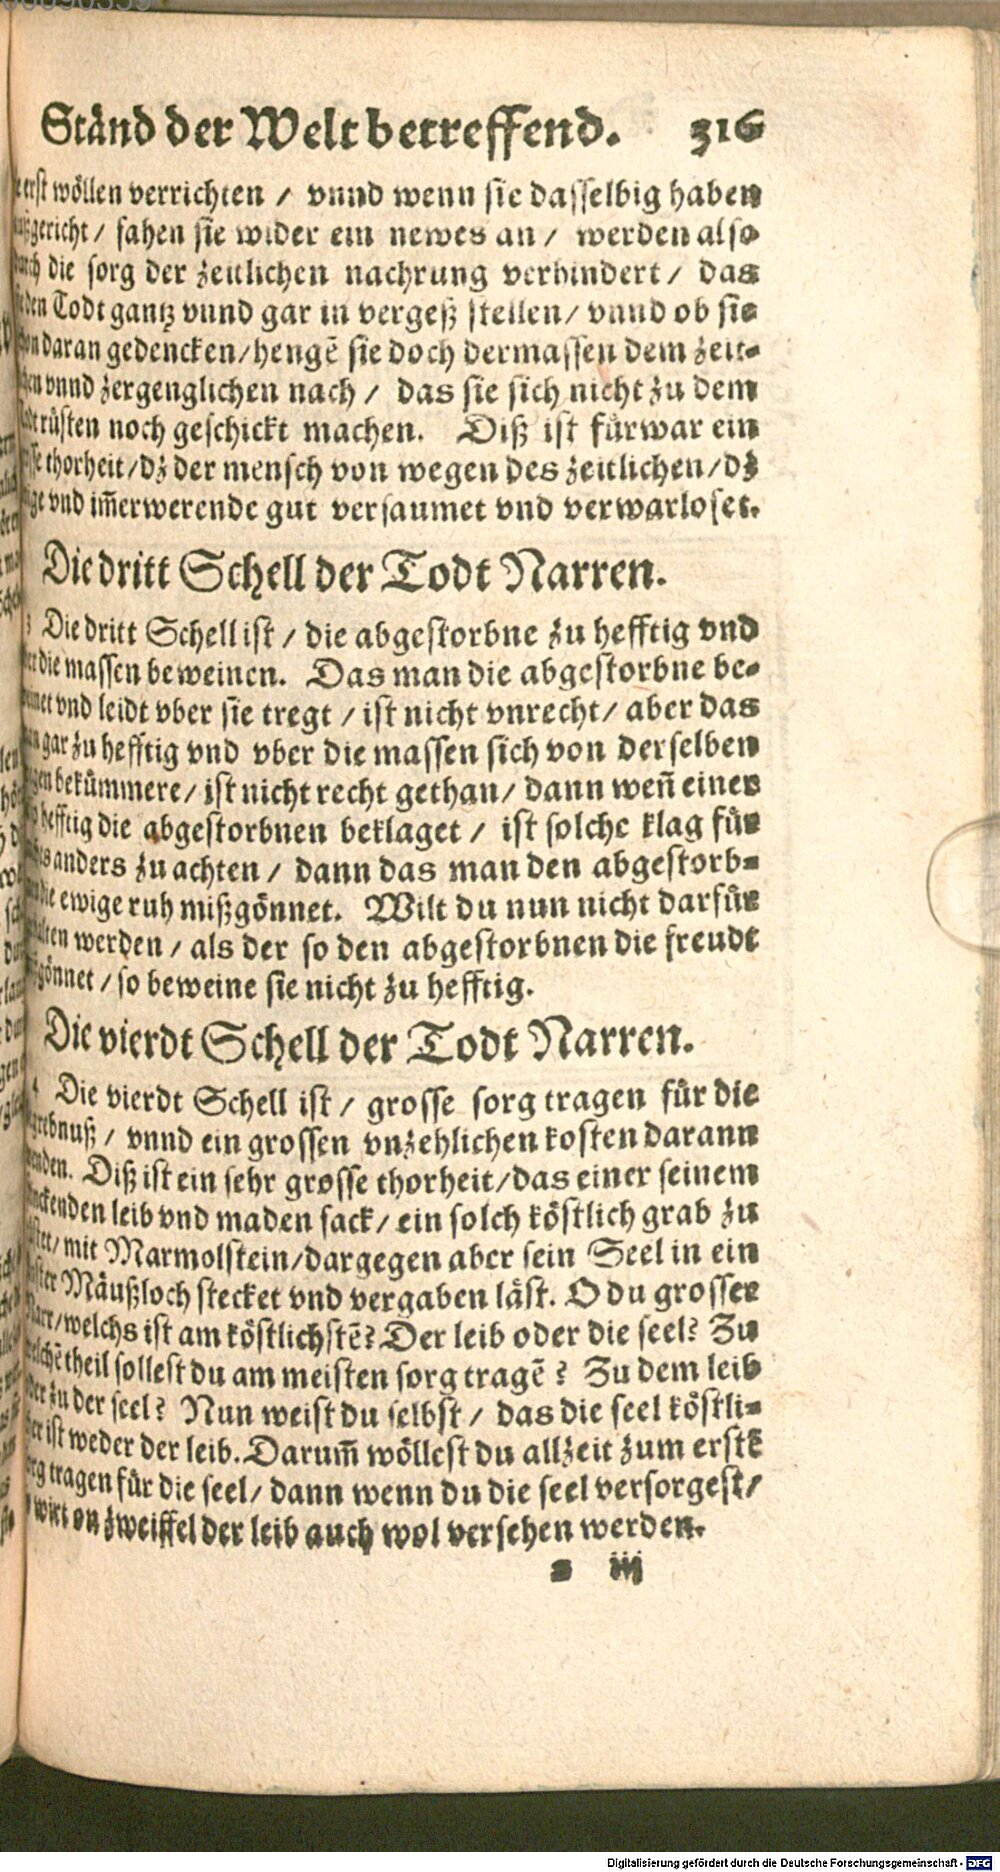 Ständ der Welt betreffend. 316
erst wöllen verrichten / vnnd wenn sie dasselbig haben
gericht / fahen sie wider ein newes an / werden also
die sorg der zeitlichen nachrung verhindert / das
den Todt gantz vnnd gar in vergeß stellen / vnnd ob sie
daran gedencken / hengē sie doch dermassen dem zeit-
vnnd zergenglichen nach / das sie sich nicht zu dem
rüsten noch geschickt machen. Diß ist fürwar ein
thorheit / dz der mensch von wegen des zeitlichen / dz
vnd im̄erwerende gut versaumet vnd verwarloset.
Die dritt Schell der Todt Narren.
3 Die dritt Schell ist / die abgestorbne zu hefftig vnd
die massen beweinen. Das man die abgestorbne be-
vnd leidt vber sie tregt / ist nicht vnrecht / aber das
gar zu hefftig vnd vber die massen sich von derselben
bekümmere / ist nicht recht gethan / dann wen̄ einer
hefftig die abgestorbnen beklaget / ist solche klag für
anders zu achten / dann das man den abgestorb-
ewige ruh mißgönnet. Wilt du nun nicht darfür
werden / als der so den abgestorbnen die freudt
gönnet / so beweine sie nicht zu hefftig.
Die vierdt Schell der Todt Narren.
4 Die vierdt Schell ist / grosse sorg tragen für die
grebnuß / vnnd ein grossen vnzehlichen kosten darann
Diß ist ein sehr grosse thorheit / das einer seinem
leib vnd maden sack / ein solch köstlich grab zu
mit Marmolstein / dargegen aber sein Seel in ein
Mäußloch stecket vnd vergaben läst. O du grosser
Narr / welchs ist am köstlichstē? Der leib oder die seel? Zu
welchē theil sollest du am meisten sorg tragē? Zu dem leib
oder zu der seel? Nun weist du selbst / das die seel köstli-
ist weder der leib. Darum̄ wöllest du allzeit zum erstē
sorg tragen für die seel / dann wenn du die seel versorgest /
wirt on zweiffel der leib auch wol versehen werden.
s iij
Digitalisierung gefördert durch die Deutsche Forschungsgemeinschaft - DFG